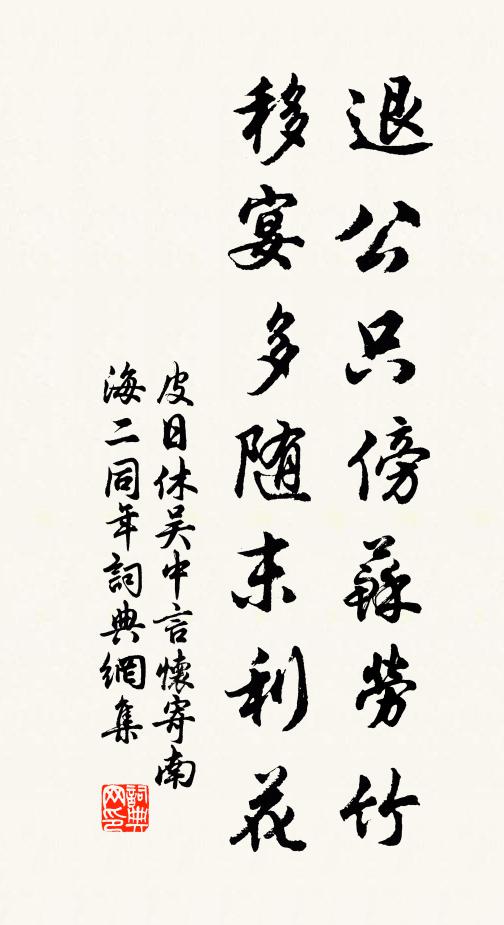 退公只傍蘇勞竹
移宴多随末利花
皮日休吴中言懷寄南
海二同年詞典網集
詞典
网印